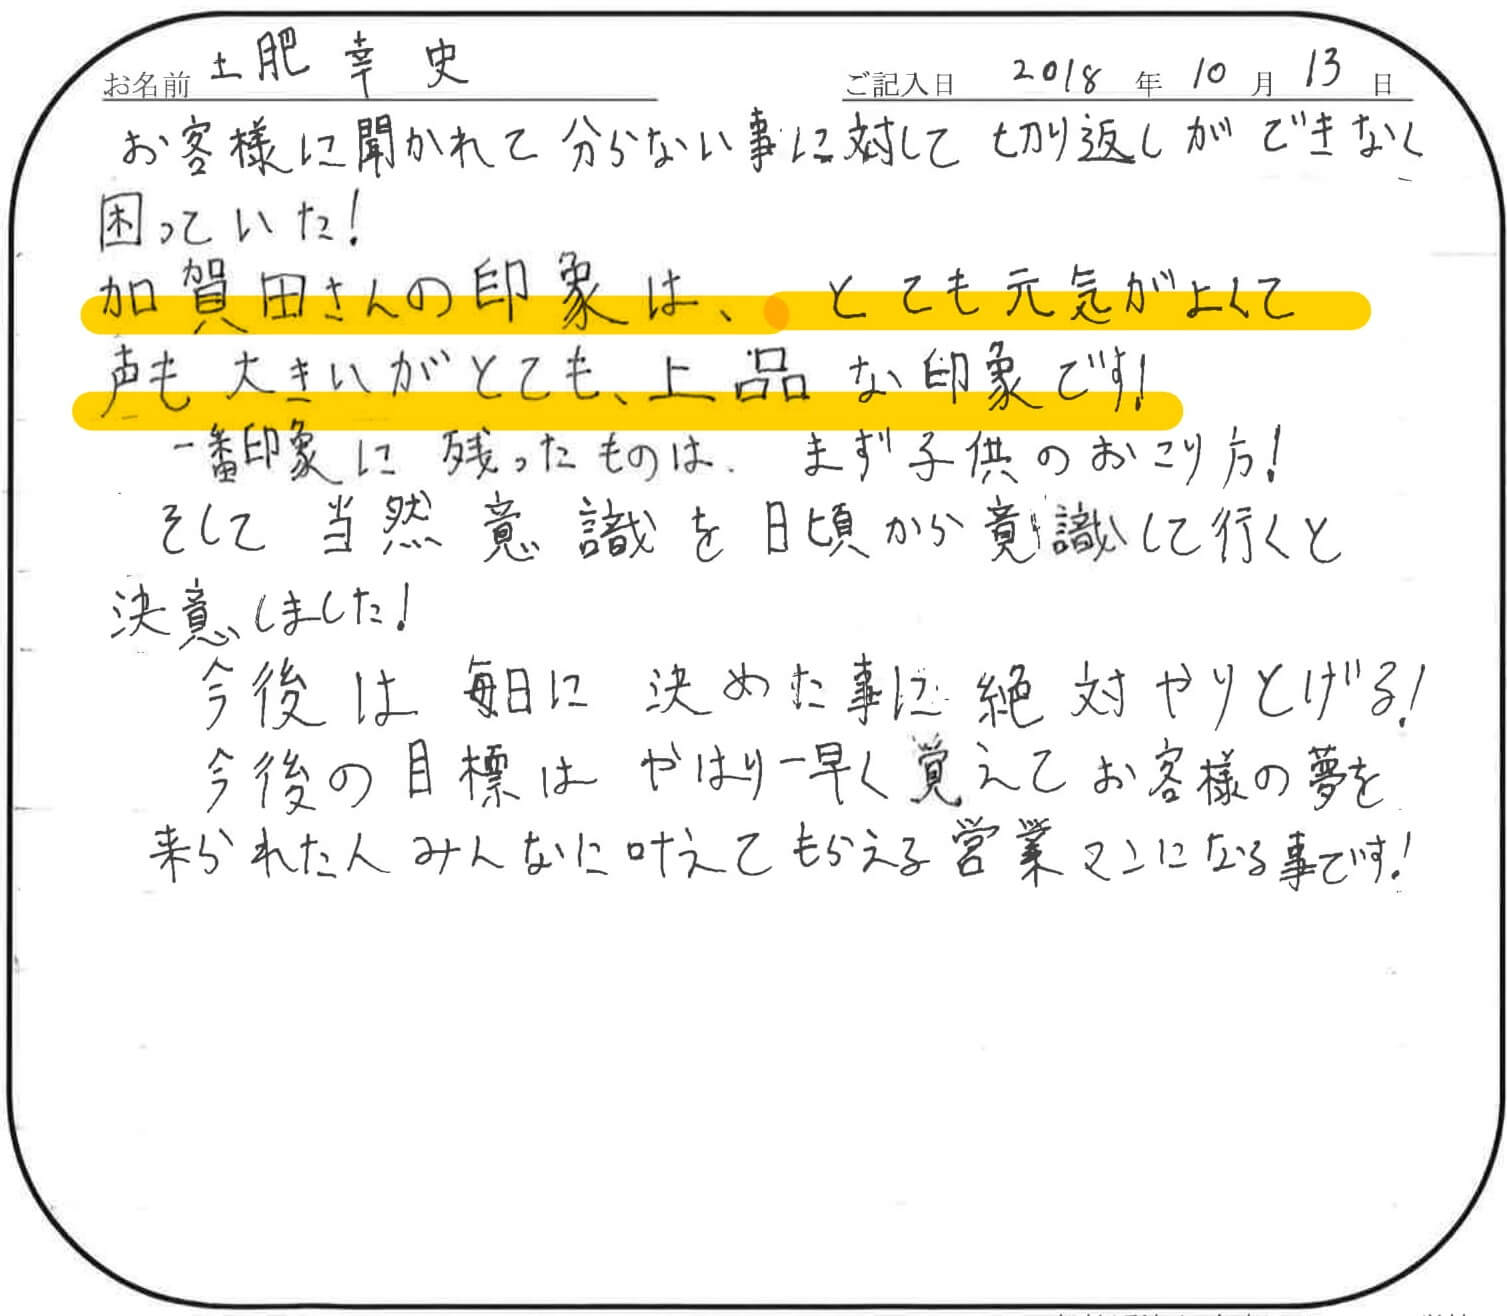 お名前 土肥幸史 ご記入日 2018年10月13日
お客様に聞かれて分らない事に対して切り返しができなく
困っていた!
加賀田さんの印象は、とても元気がよくて
声も大きいがとても、上品な印象です!
一番印象に残ったものは、まず子供のおこり方!
そして当然意識を日頃から意識して行くと
決意しました!
今後は毎日に決めた事に絶対やりとげる!
今後の目標はやはり一早く覚えてお客様の夢を
来られた人みんなに叶えてもらえる営業マンになる事です!